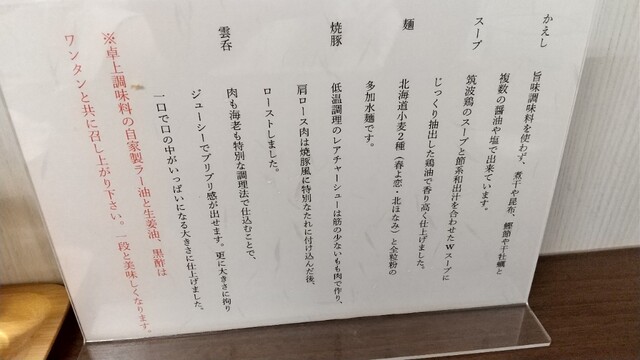 かえし
旨味調味料を使わず、煮干や昆布、鰹節や干牡蠣と
複数の醤油や塩で出来ています。
スープ
筑波鶏のスープと節系和出汁を合わせたWスープに
じっくり抽出した鶏油で香り高く仕上げました。
麺
北海道小麦2種（春よ恋・北ほなみ）と全粒粉の
多加水麺です。
焼豚
低温調理のレアチャーシューは筋の少ないもも肉で作り、
肩ロース肉は焼豚風に特別なたれに付け込んだ後、
ローストしました。
雲呑
肉も海老も特別な調理法で仕込むことで、
ジューシーでプリプリ感が出せます。更に大きさに拘り
一口で口の中がいっぱいになる大きさに仕上げました。
※卓上調味料の自家製ラー油と生姜油、黒酢は
ワンタンと共に召し上がり下さい。一段と美味しくなります。